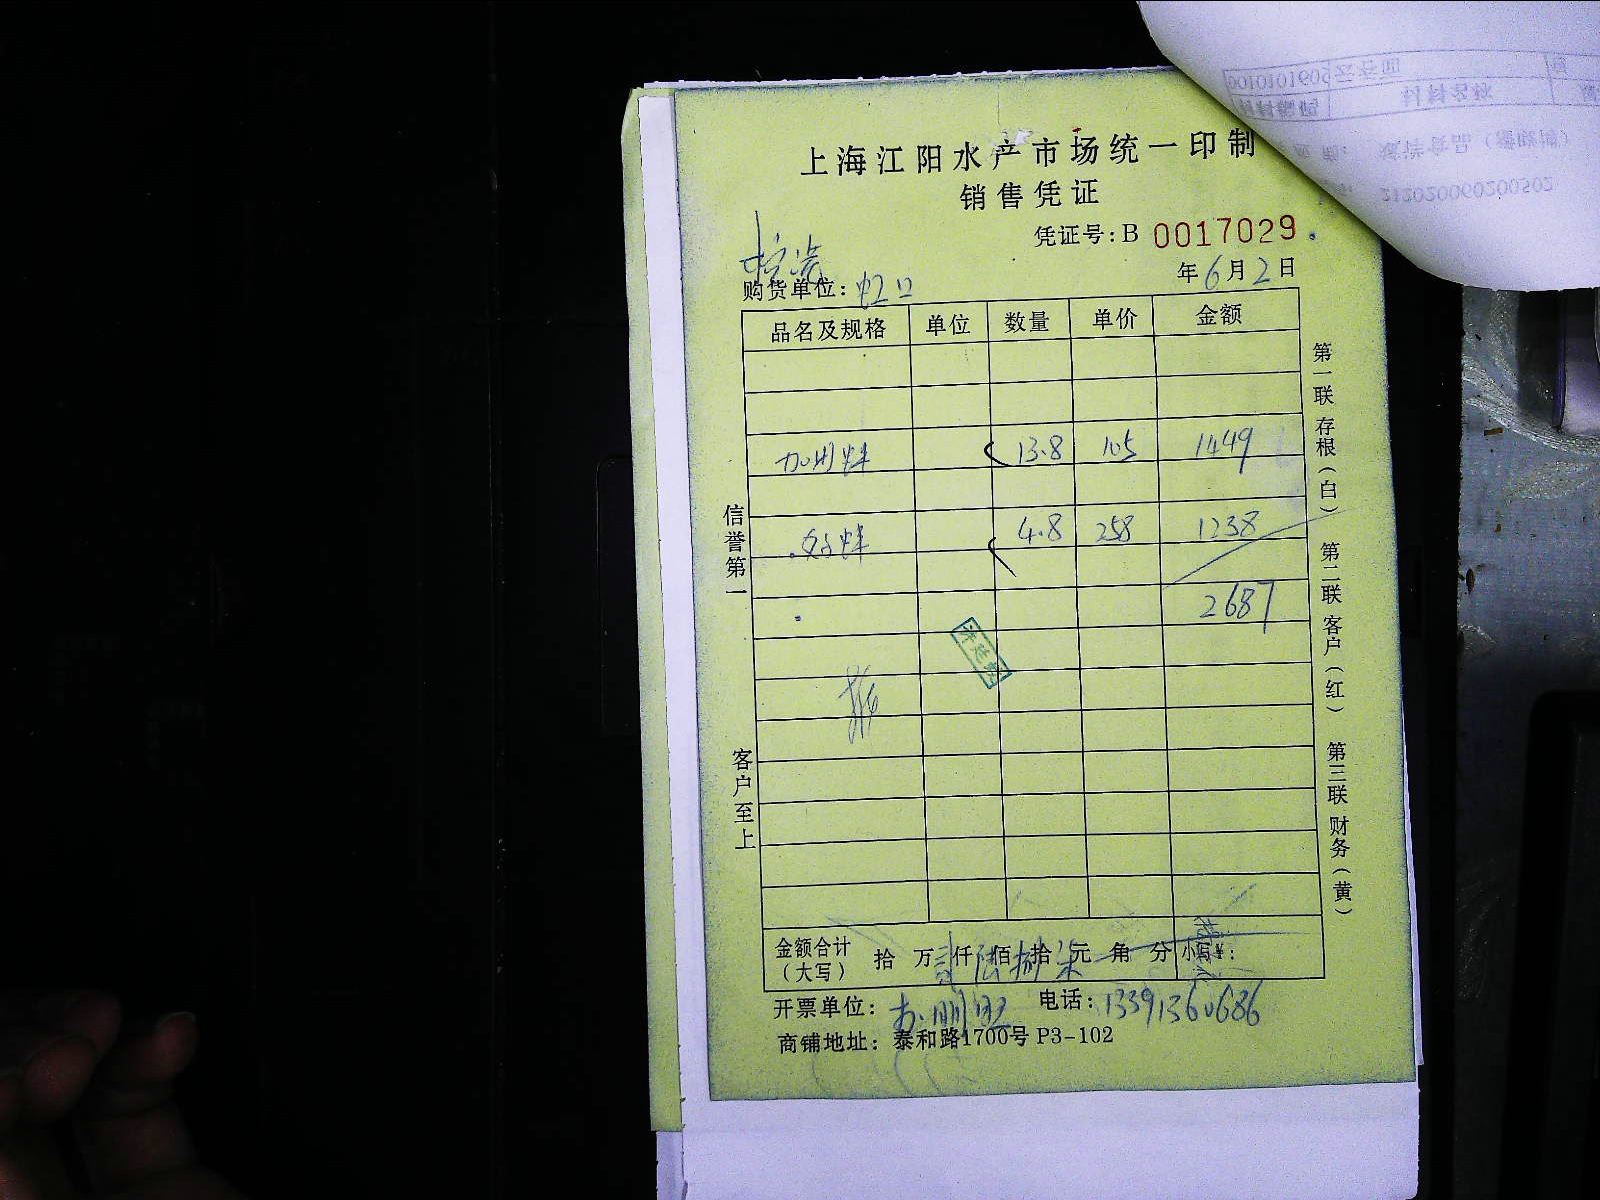 上海江阳水产市场统一印制
销售凭证
凭证号:B 0017029
年6月2日
购货单位:虹口
品名及规格 单位 数量 单价 金额
13.8 105 1449
4.8 258 1238
2687
信誉第一
客户至上
第一联 存根(白)
第二联 客户(红)
第三联 财务(黄)
金额合计(大写) 拾 万 仟 佰 拾 元 角 分 小写¥:
贰 陆 捌 柒
开票单位: 电话:13391360686
商铺地址:泰和路1700号 P3-102